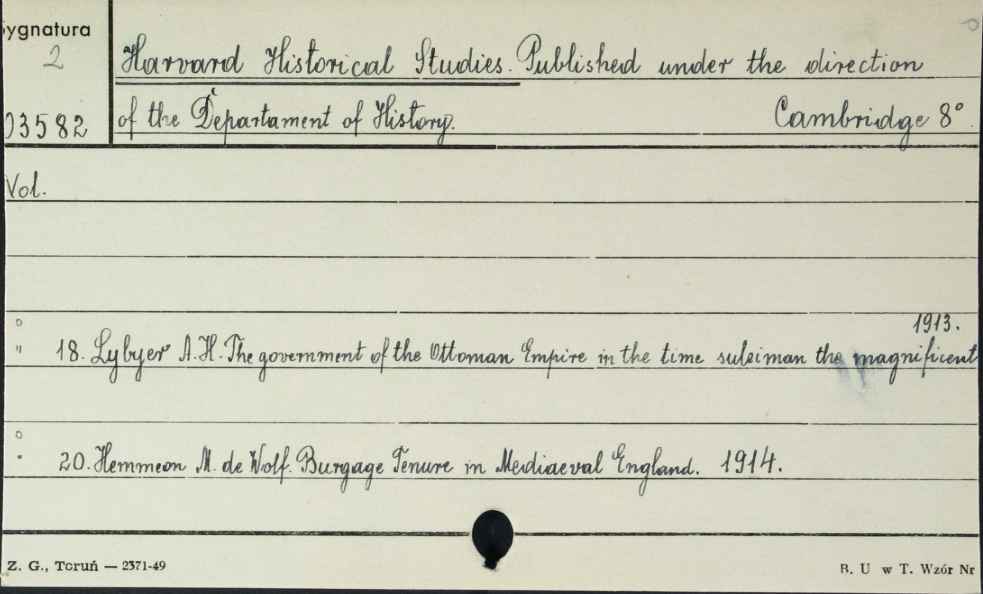 Sygnatura
2 Harvard Historical Studies. Published under the direction
03582 of the Departament of History. Cambridge 8°.
Vol.
1913.
" 18. Lybyer A.H. The government of the Ottoman Empire in the time suleiman the magnificent
20. Hemmeon M. de Wolf. Burgage Tenure in Mediaeval England. 1914.
Z. G., Toruń — 2371-49
B. U w T. Wzór Nr